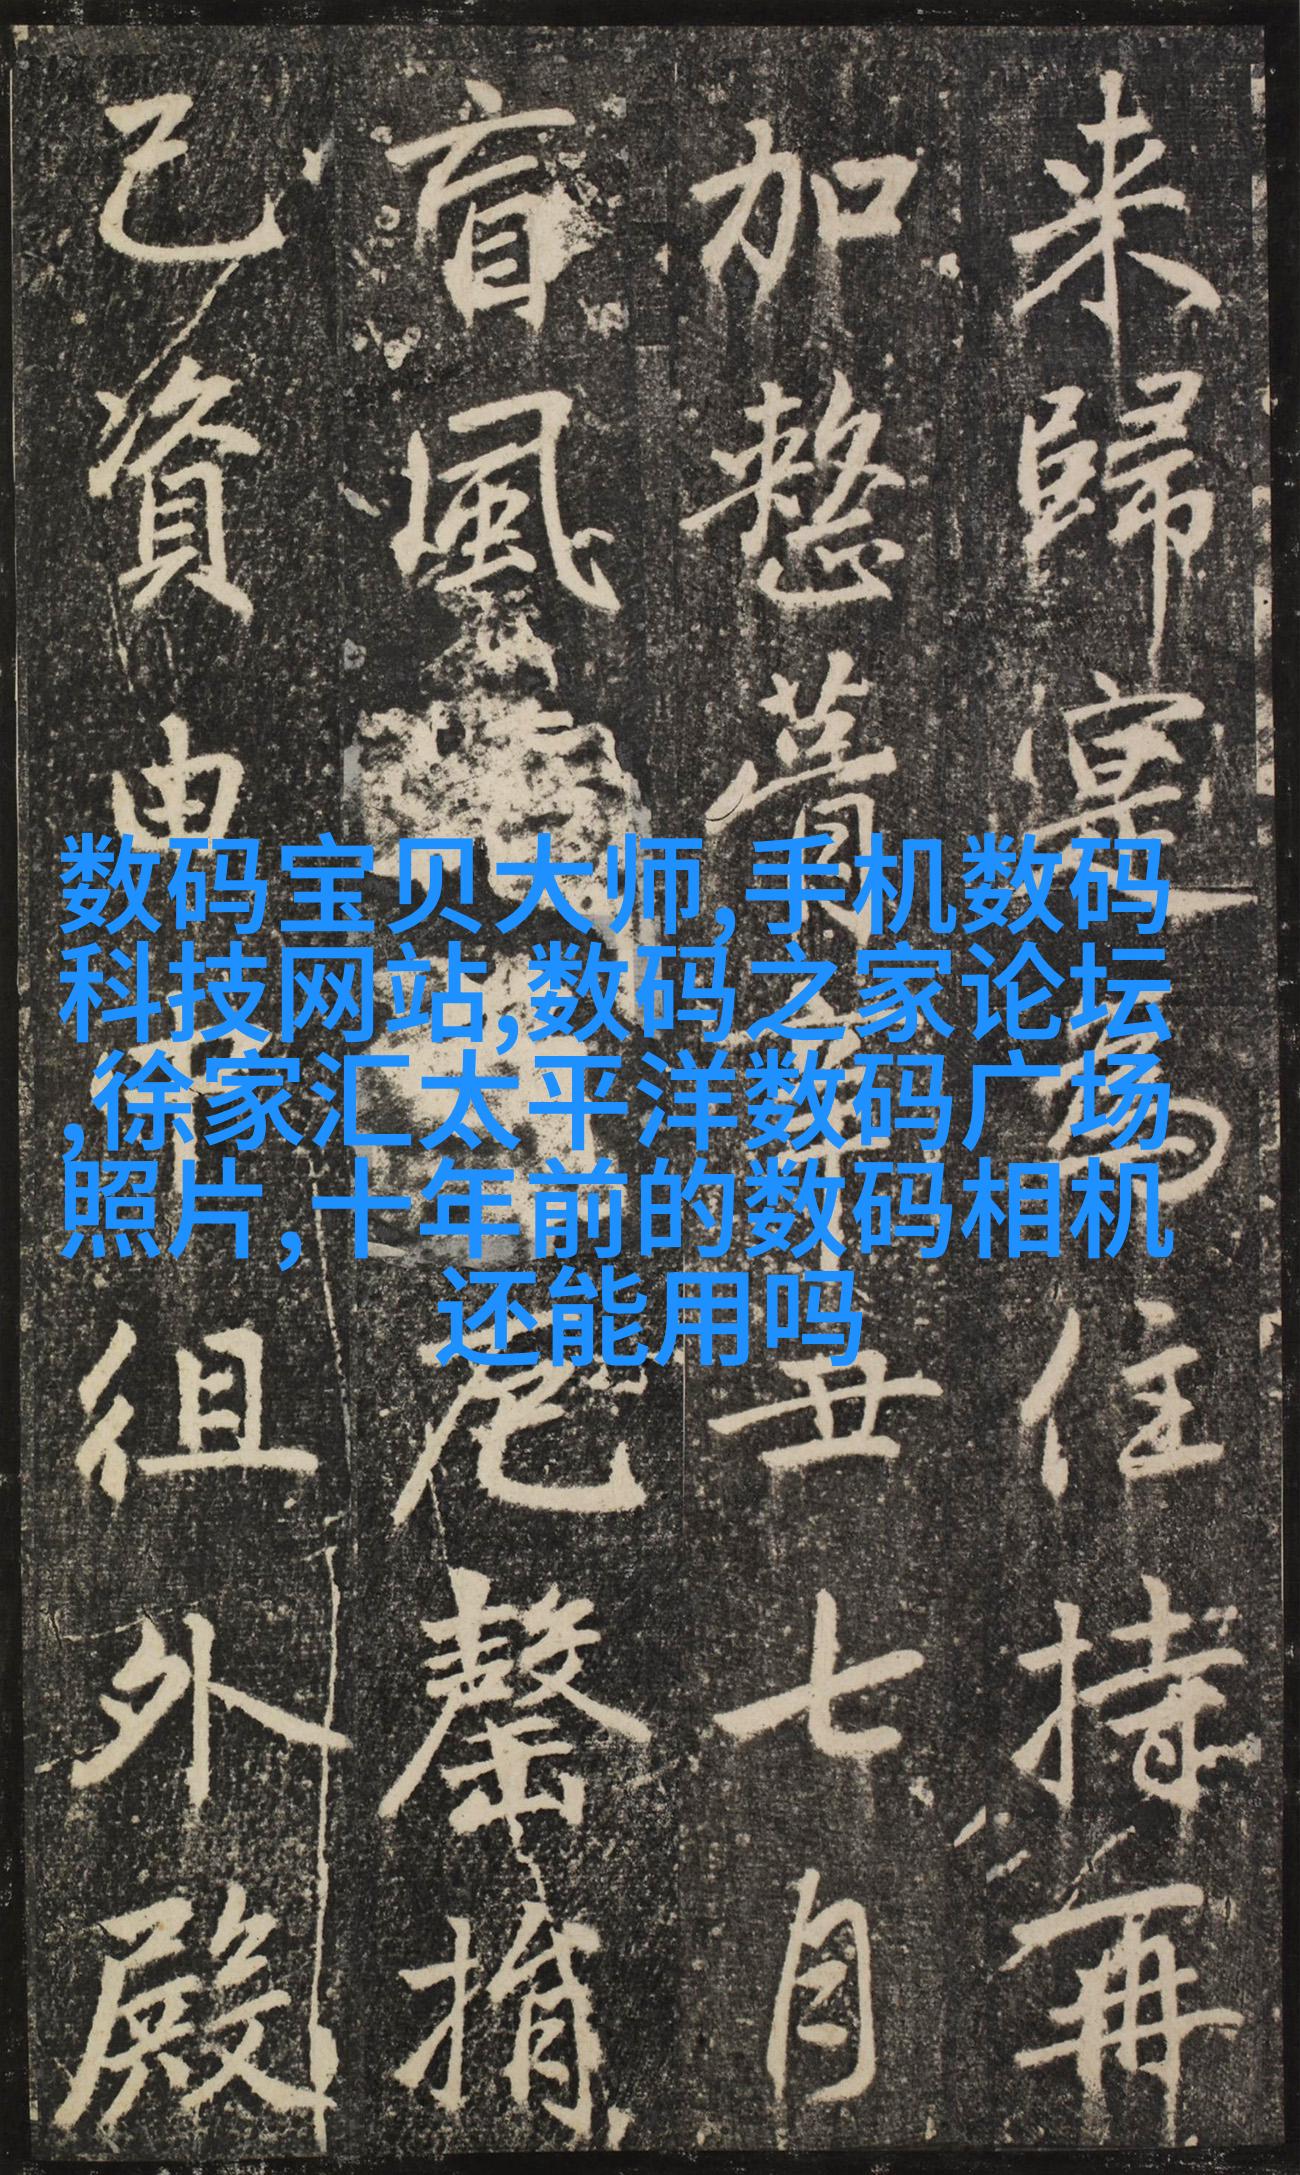 数码宝贝大师,手机数码
科技网站,数码之家论坛
,徐家汇太平洋数码广场
照片,十年前的数码相机
还能用吗
来歸寔為住持再
加整葺丑七月
盲風罄捐
己資由中徂外殿